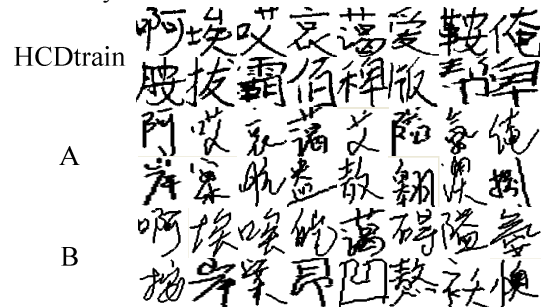 HCDtrain
啊埃哎哀蔼爱鞍俺
胺拔霸佰稗版
A
阿哎哀蔼艾隘氨俺
岸案肮盎敖翱
B
啊埃唉皑蔼碍隘氨
按岸昂凹熬袄懊